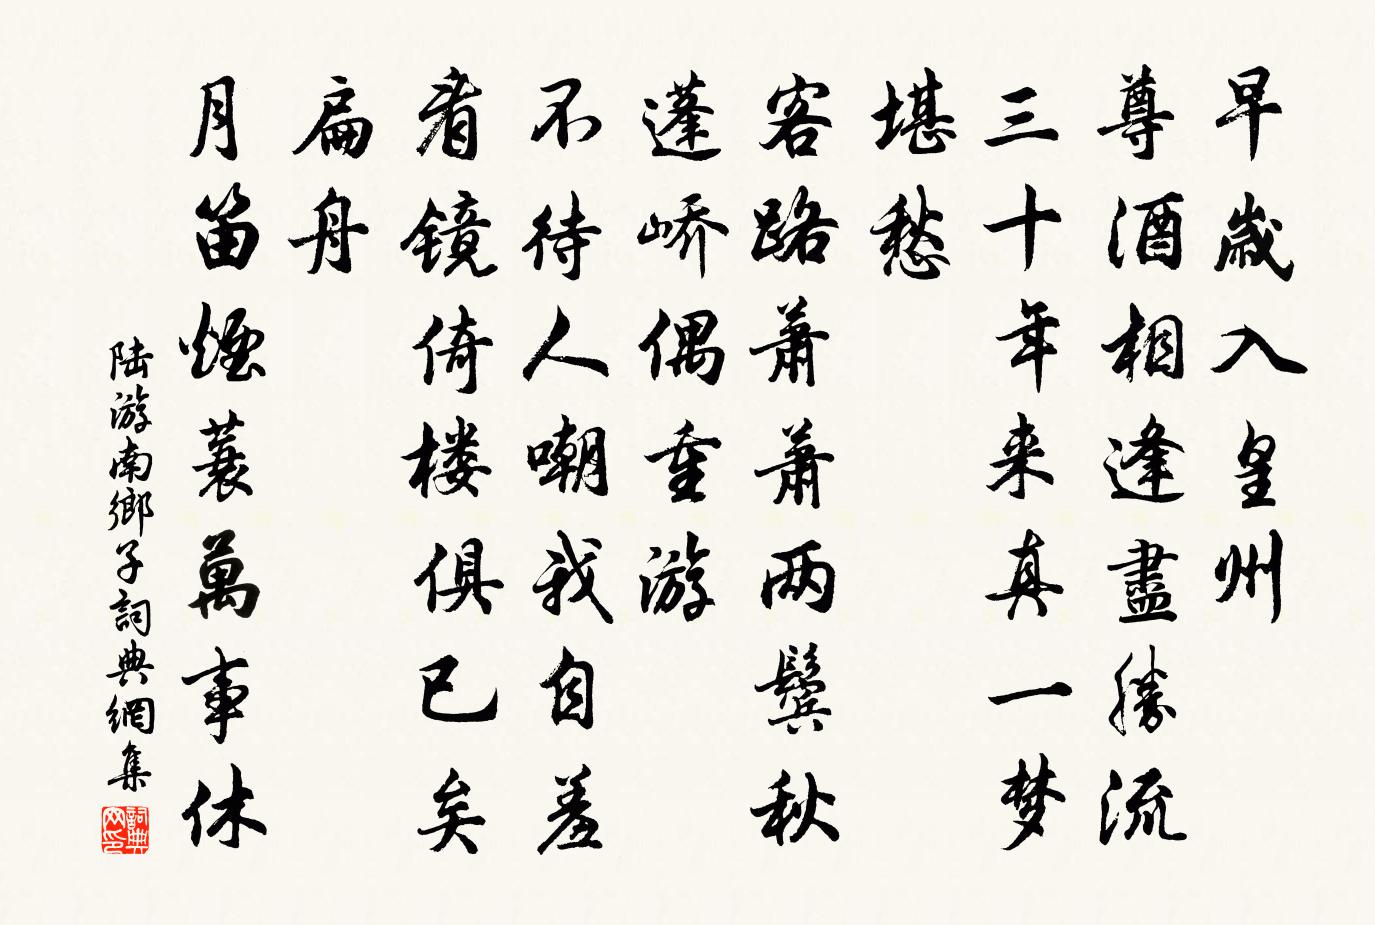 早歲入皇州
尊酒相逢盡勝流
三十年来真一梦
堪愁
客路萧萧两鬓秋
蓬峤偶重游
不待人嘲我自羞
看镜倚楼俱已矣
扁舟
月笛煙蓑萬事休
陆游南鄉子詞典網集
詞典
网印